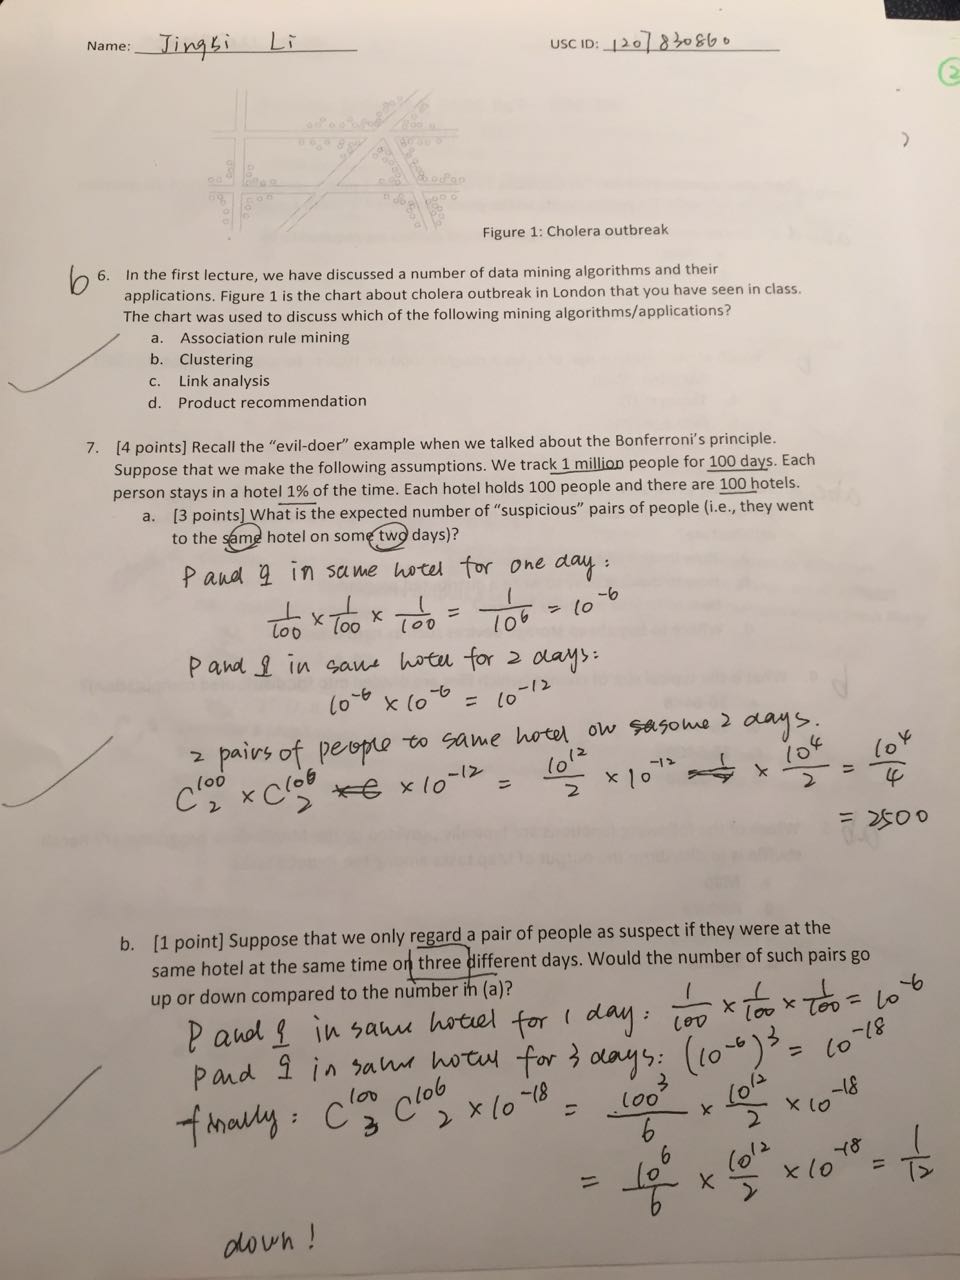 Name: Jingbi Li USC ID: 1207830860
2
Figure 1: Cholera outbreak
b 6. In the first lecture, we have discussed a number of data mining algorithms and their
applications. Figure 1 is the chart about cholera outbreak in London that you have seen in class.
The chart was used to discuss which of the following mining algorithms/applications?
a. Association rule mining
b. Clustering
c. Link analysis
d. Product recommendation
7. [4 points] Recall the “evil-doer” example when we talked about the Bonferroni’s principle.
Suppose that we make the following assumptions. We track 1 million people for 100 days. Each
person stays in a hotel 1% of the time. Each hotel holds 100 people and there are 100 hotels.
a. [3 points] What is the expected number of “suspicious” pairs of people (i.e., they went
to the same hotel on some two days)?
P and q in same hotel for one day:
1/100 × 1/100 × 1/100 = 1/10^6 = 10^-6
P and q in same hotel for 2 days:
10^-6 × 10^-6 = 10^-12
2 pairs of people to same hotel on some 2 days.
C^100_2 × C^10^6_2 × 10^-12 = 10^12/2 × 10^-12 × 10^4/2 = 10^4/4
= 2500
b. [1 point] Suppose that we only regard a pair of people as suspect if they were at the
same hotel at the same time on three different days. Would the number of such pairs go
up or down compared to the number in (a)?
P and q in same hotel for 1 day: 1/100 × 1/100 × 1/100 = 10^-6
P and q in same hotel for 3 days: (10^-6)^3 = 10^-18
finally: C^100_3 C^10^6_2 × 10^-18 = 100^3/6 × 10^12/2 × 10^-18
= 10^6/6 × 10^12/2 × 10^-18 = 1/12
down!